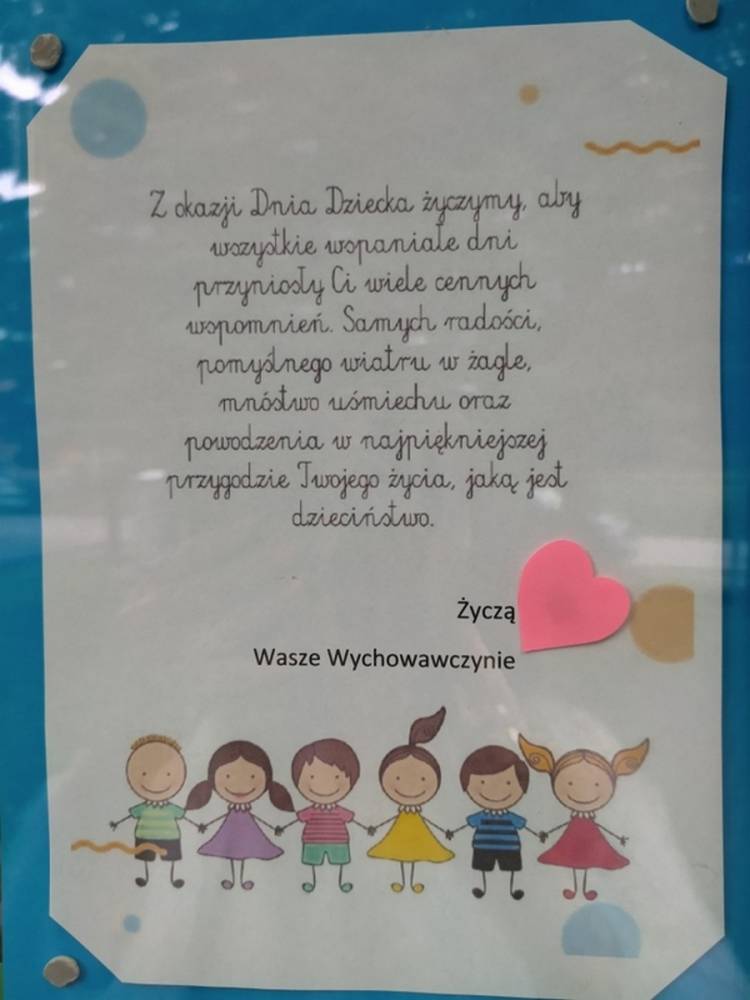 Z okazji Dnia Dziecka życzymy, aby
wszystkie wspaniałe dni
przyniosły Ci wiele cennych
wspomnień. Samych radości,
pomyślnego wiatru w żagle,
mnóstwo uśmiechu oraz
powodzenia w najpiękniejszej
przygodzie Twojego życia, jaką jest
dzieciństwo.
Życzą
Wasze Wychowawczynie